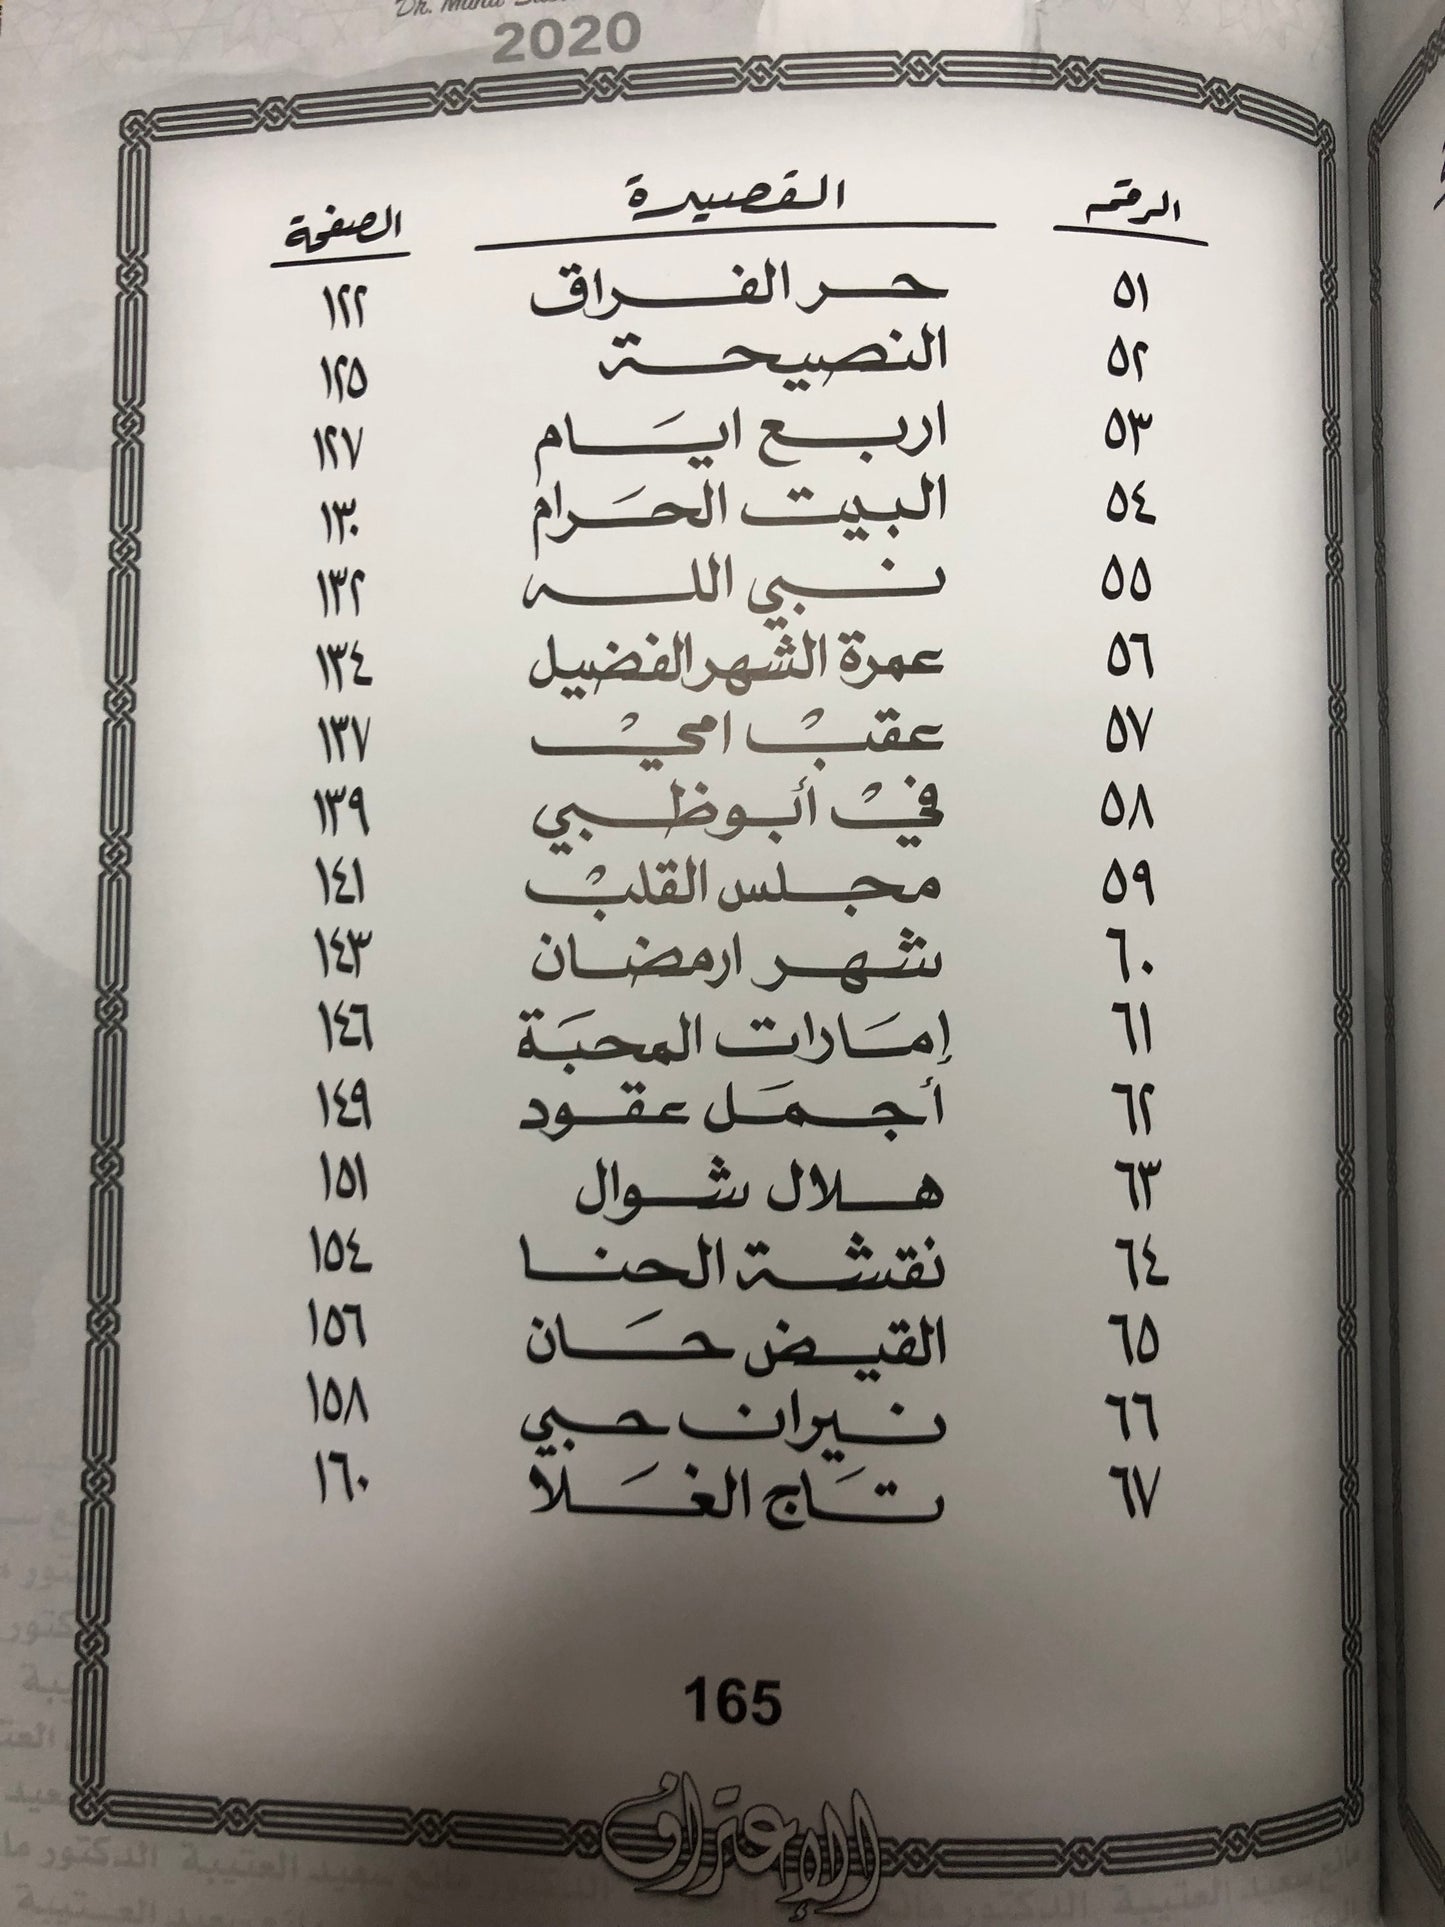 2020
الرقم القصيدة الصفحة
٥١ حر الفراق ١٢٢
٥٢ النصيحة ١٢٥
٥٣ اربع ايام ١٢٧
٥٤ البيت الحرام ١٣٠
٥٥ نبي الله ١٣٢
٥٦ عمرة الشهر الفضيل ١٣٤
٥٧ عقب امحي ١٣٧
٥٨ في أبوظبي ١٣٩
٥٩ مجلس القلب ١٤١
٦٠ شهر ارمضان ١٤٣
٦١ إمارات المحبة ١٤٦
٦٢ أجمل عقود ١٤٩
٦٣ هلال شوال ١٥١
٦٤ نقشة الحنا ١٥٤
٦٥ القيض حان ١٥٦
٦٦ نيران حبي ١٥٨
٦٧ تاج الغلا ١٦٠
165
الإعتراف